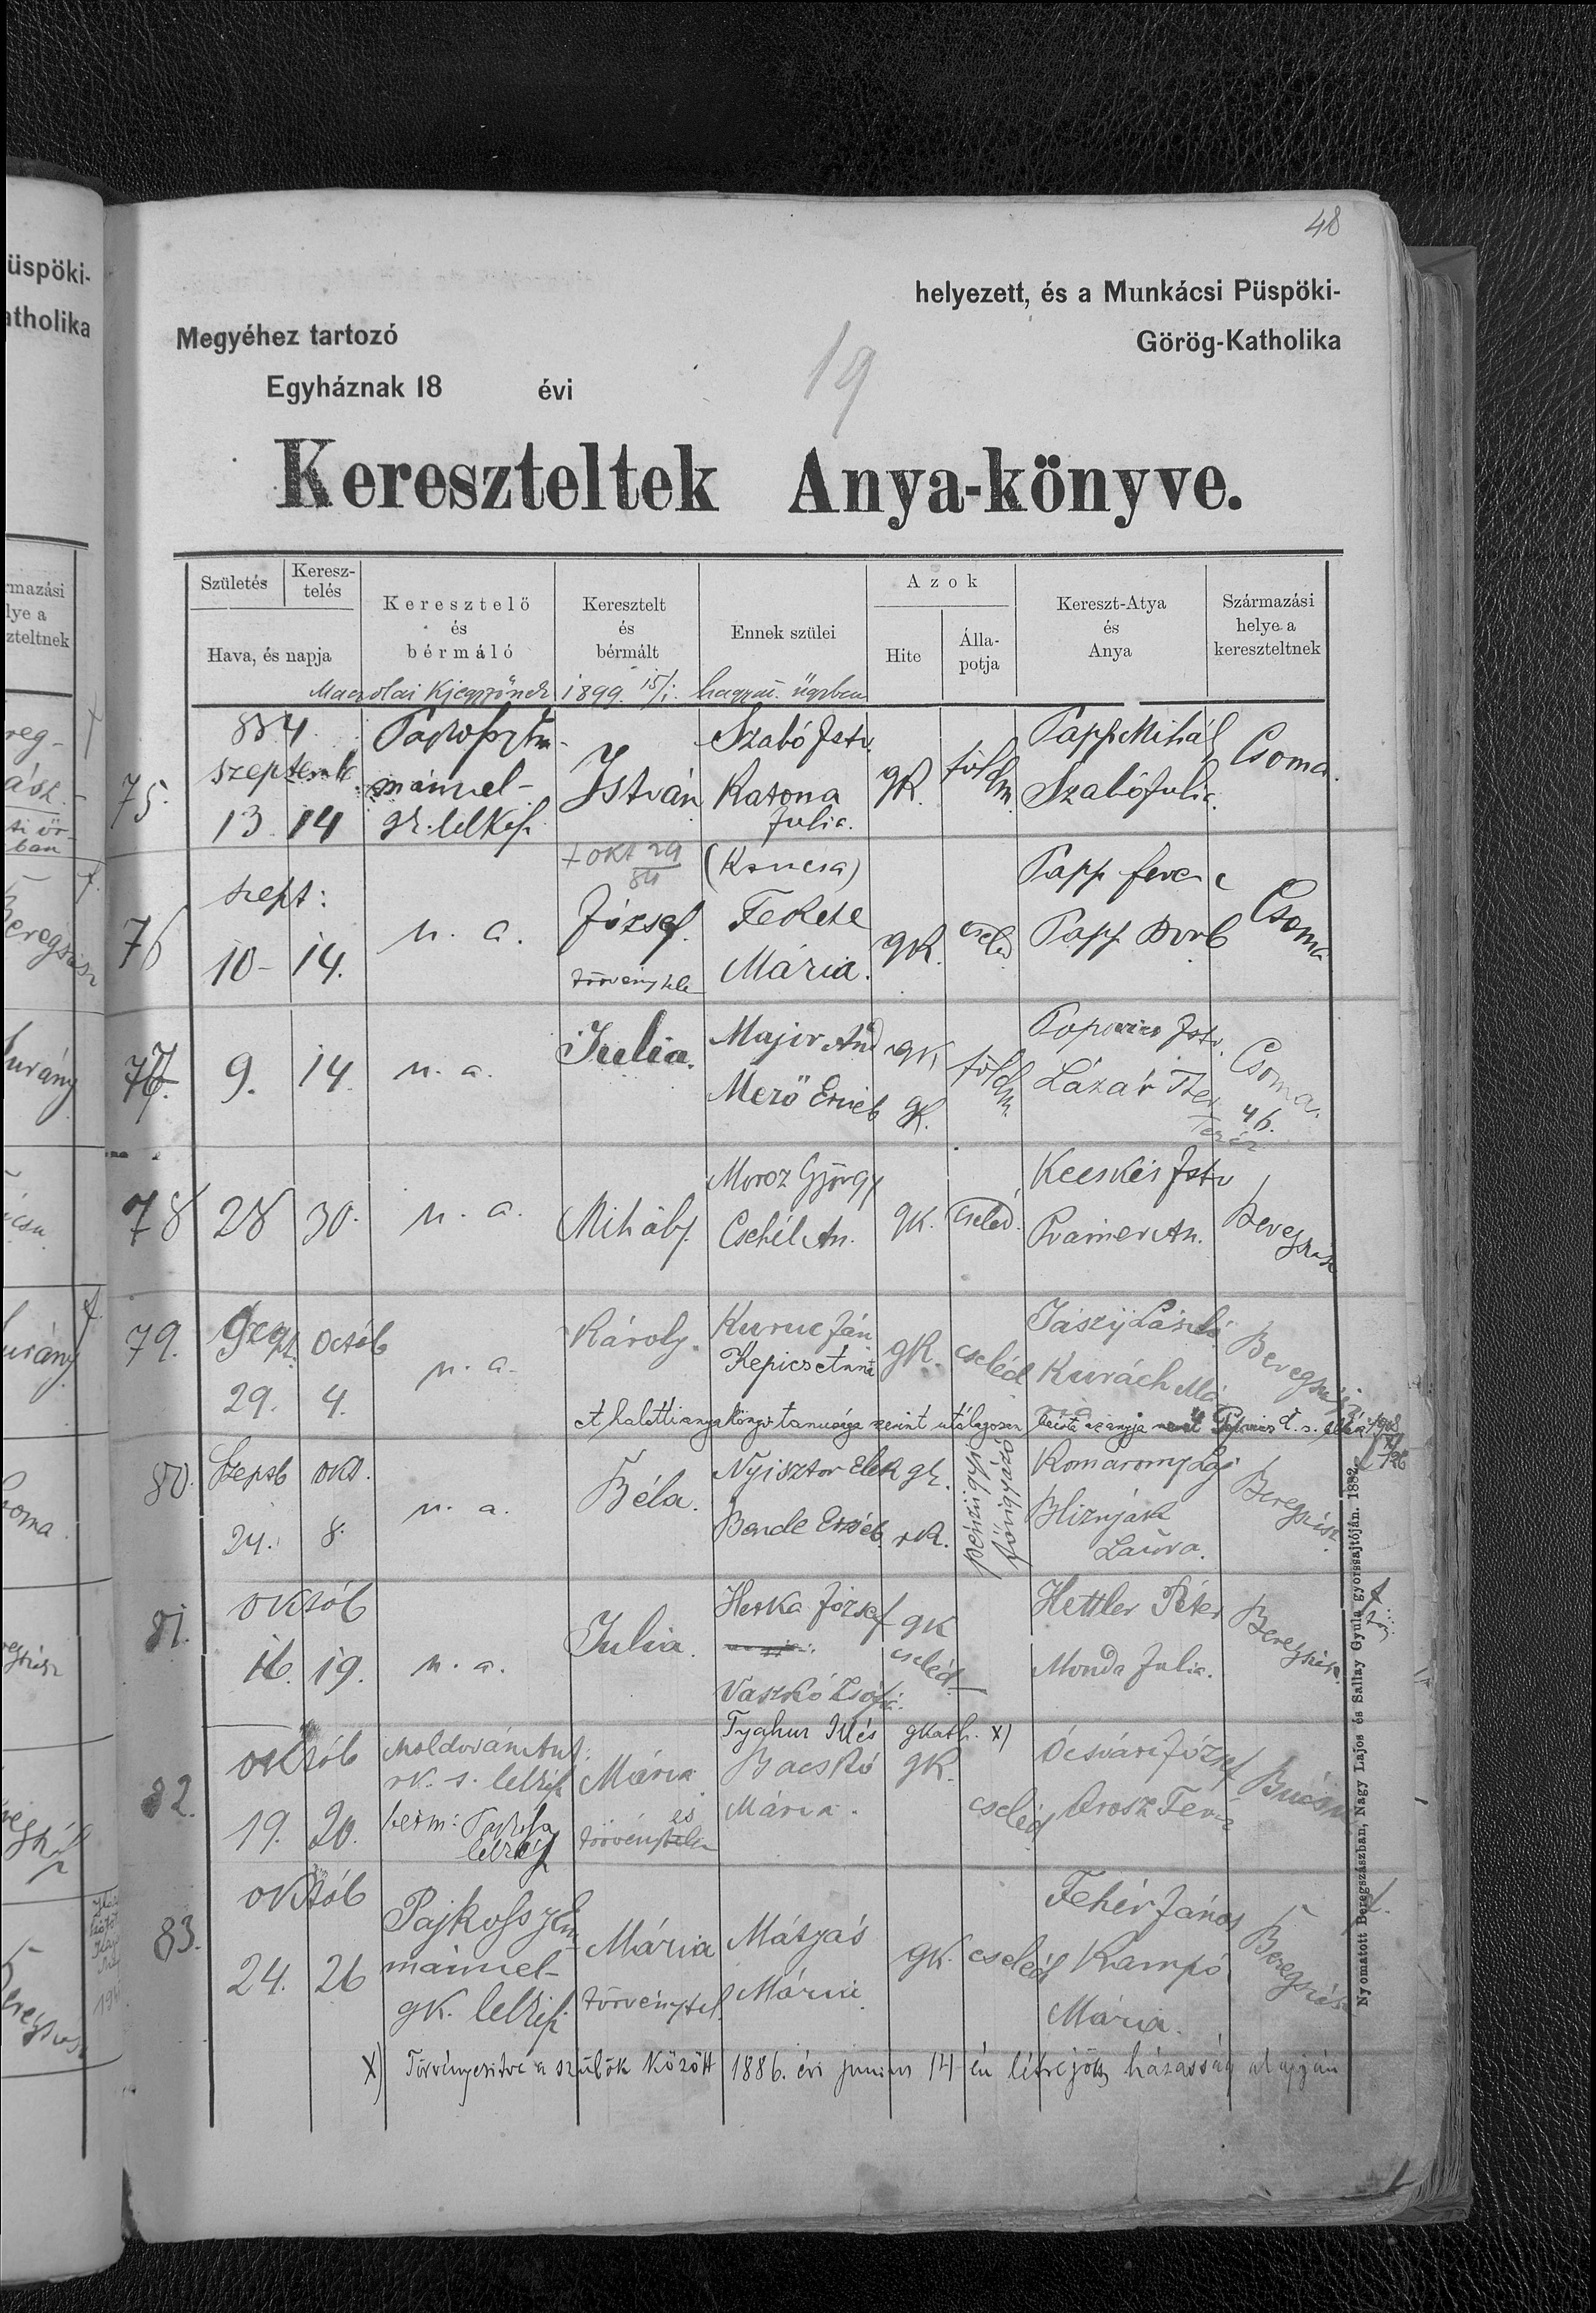 48
helyezett, és a Munkácsi Püspöki-
Megyéhez tartozó
Görög-Katholika
Egyháznak 18 évi
19
Kereszteltek Anya-könyve.
Születés
Keresz-
telés
Hava, és napja
Keresztelő
és
bérmáló
Keresztelt
és
bérmált
Ennek szülei
Azok
Hite
Álla-
potja
Kereszt-Atya
és
Anya
Származási
helye a
kereszteltnek
1899 15/1.
75.
884
Szeptemb
13 14
mánuel-
gk. lelkész
István
Szabó Istv.
Katona
Julia.
gk.
földm
Papp Mihál
Szabó Julia.
Csoma.
76
szept:
10- 14.
n. a.
+ okt 29
84
József
törvénytele
Fekete
Mária.
gk.
cseléd
Papp ferenc
Papp Borb
Csoma
77.
9. 14
n. a.
Julia.
Major And
Mező Erzséb
gk
gk.
földm.
Popovics Istv.
Lázár Ter
Teréz
Csoma.
46.
78
28 30.
n. a.
Mihály.
Moroz György
Csehél An.
gk.
cseléd.
Kecskés Istv
Pramer An.
Beregszász
79.
Szept. Octób
29. 4.
n. a.
Károly.
Kuruc Ján
Kepics Anna
gk.
cseléd
Jászij László
Kurách Má
Beregszász.
A halotti anyakönyv tanusága szerint utólagosan
80.
Szeptb okt.
24. 8.
n. a.
Béla.
Nyisztor Elek gk.
Bende Erzséb. rk.
pénzügyi
fővigyázó
Komaromy Laj
Bliznyák
Laura.
Beregszász.
81.
Október
16. 19.
n. a.
Julia.
Herka József
Vaszkó Zsófi.
gk
cseléd
Hettler Péter
Monda Julia.
Beregszász.
82.
Októb
19. 20.
Moldován Ant.
rk. s. lelkész
berm: Pajkossy
lelkész
Mária
és
törvénytelen
Tyahur Illés gkath. x)
Bacskó
Mária.
gk.
cseléd
Ócsvári József
Orosz Ter.
Bucsu
83.
októb
24. 26
Pajkossy Em
mánuel-
gk. lelkész
Mária
törvénytel.
Mátyás
Mária
gk.
cseléd
Fehér János
Kampó
Mária.
Beregszász
x) Törvényesitve a szülők között 1886. évi junius 14 én létrejött házasság alapján
Nyomatott Beregszászban, Nagy Lajos és Sallay Gyula gyorssajtóján. 1882.
üspöki-
atholika
rmazási
lye a
zteltnek